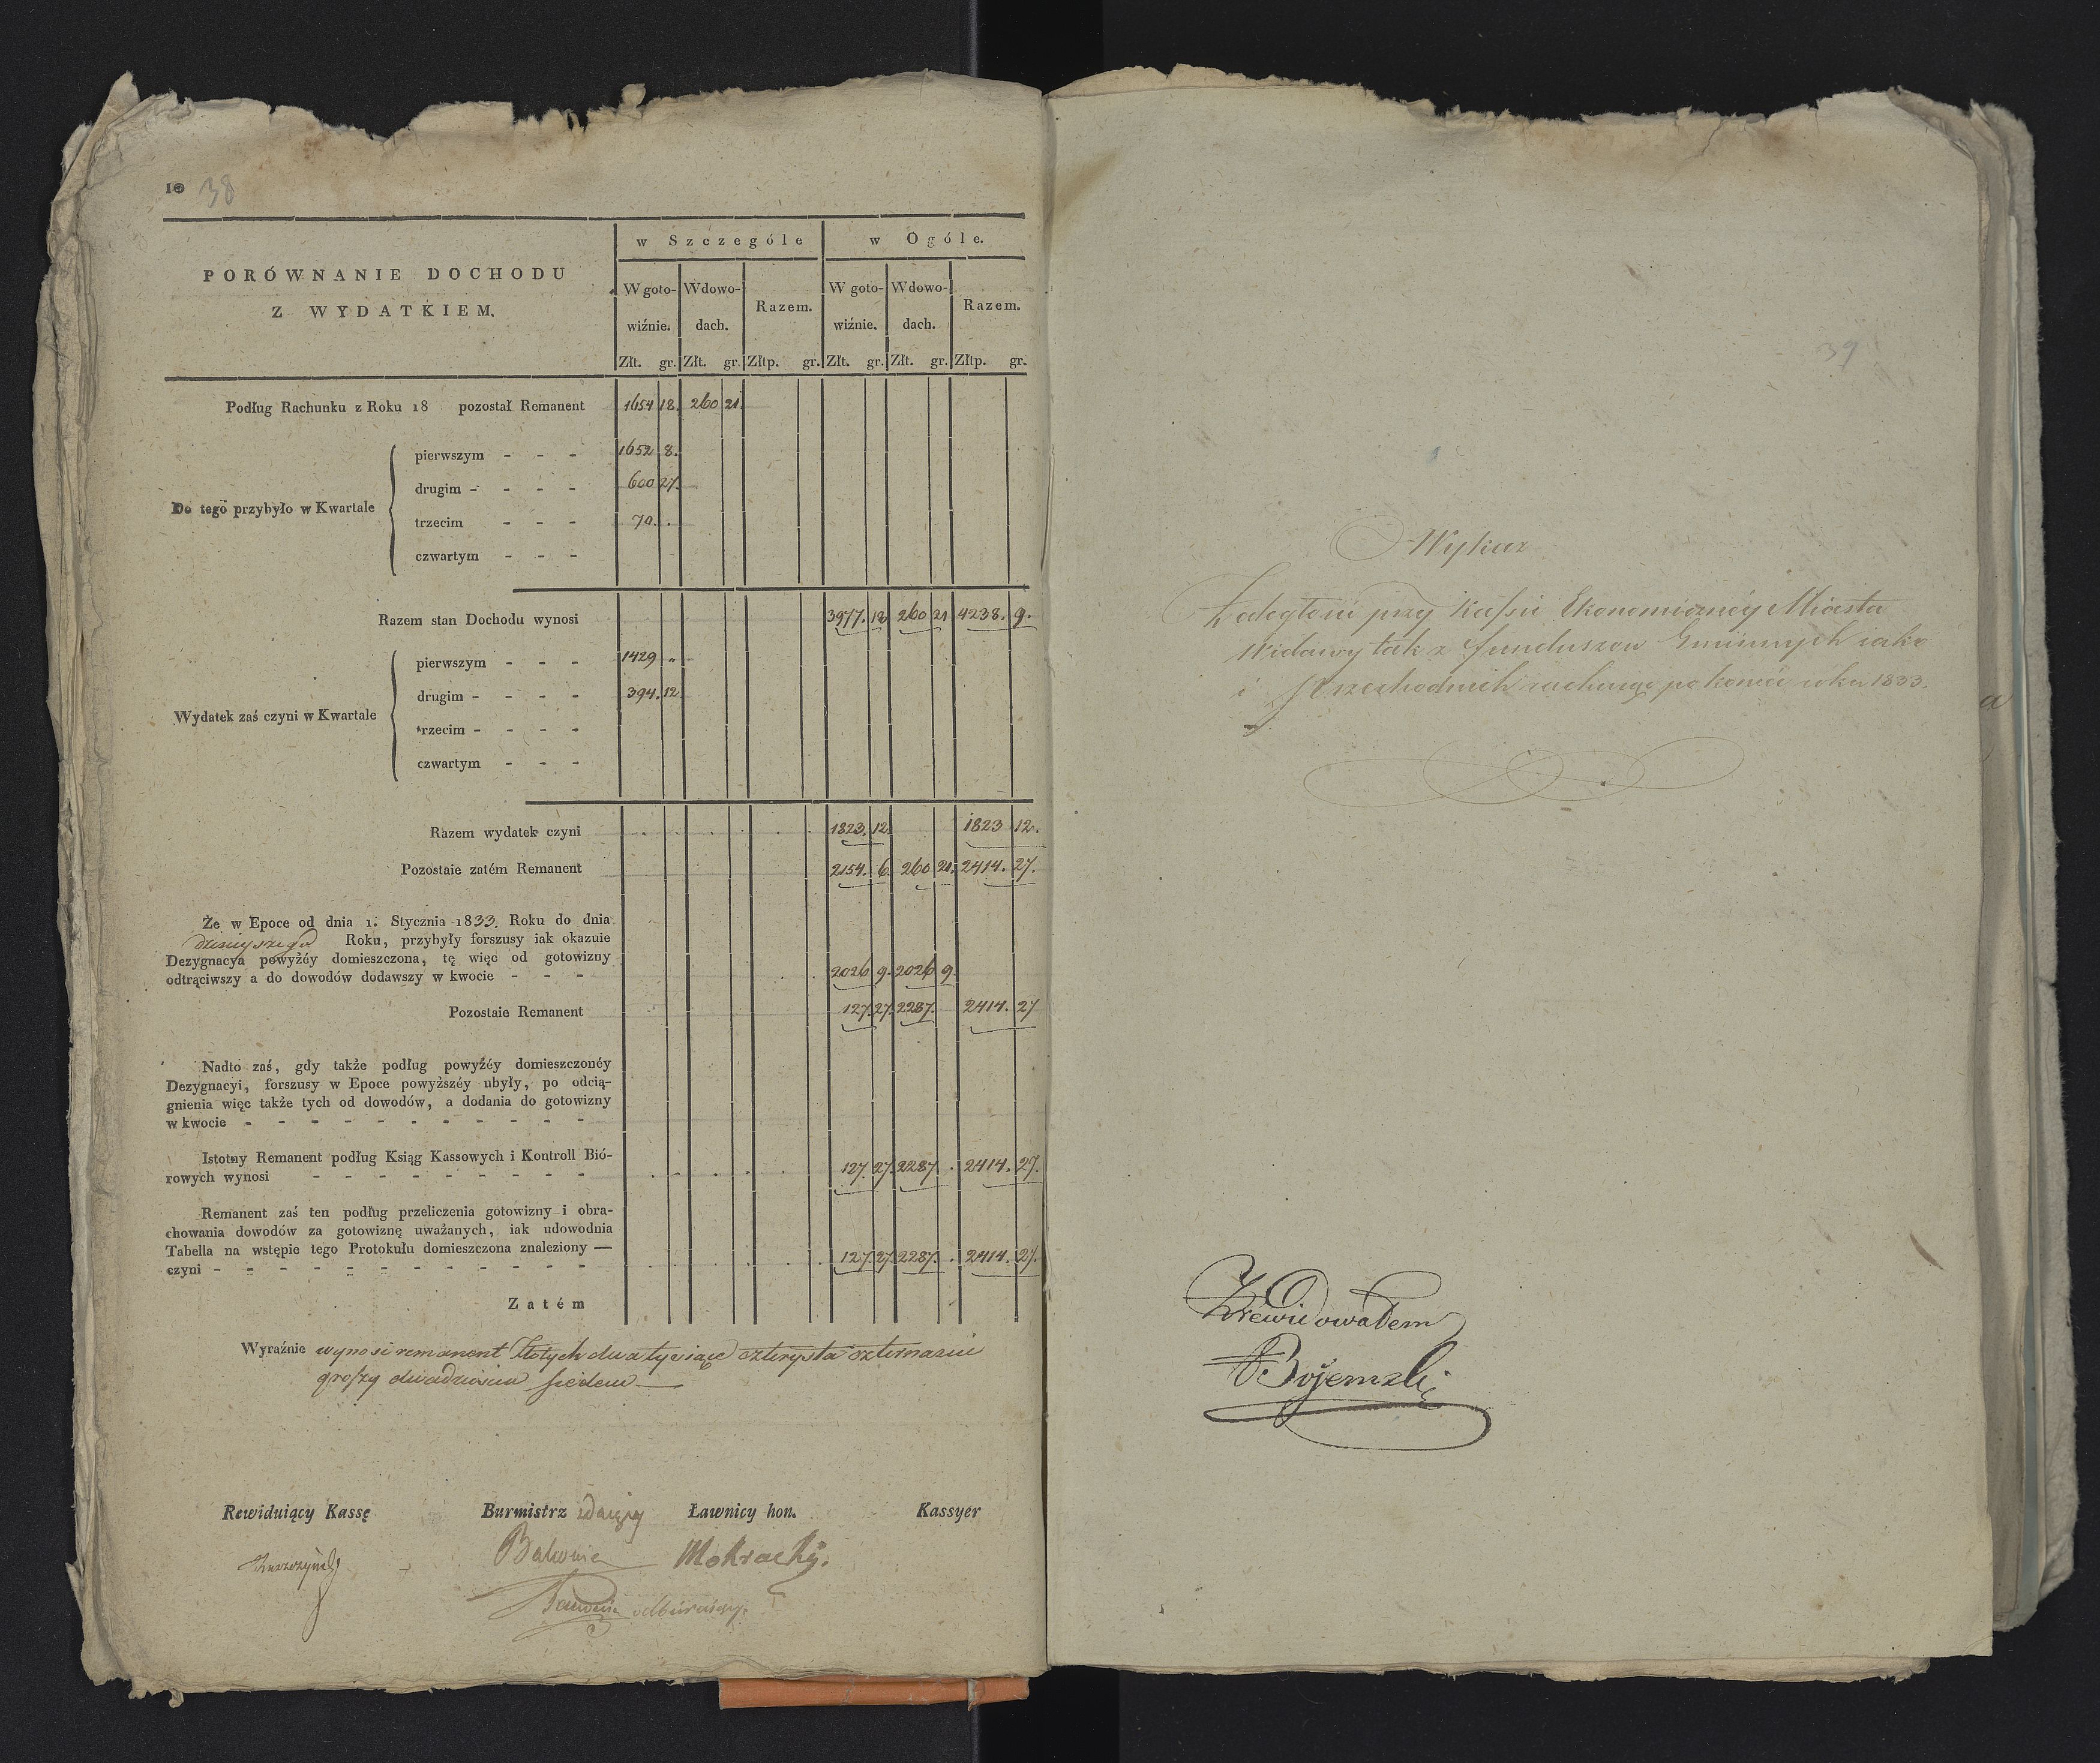 10 38
w Szczególe w Ogóle.
PORÓWNANIE DOCHODU
Z WYDATKIEM.
W goto- W dowo- Razem. W goto- W dowo- Razem.
wiźnie. dach. wiźnie. dach.
Złt. gr. Złt. gr. Złtp. gr. Złt. gr. Złt. gr. Złtp. gr.
Podług Rachunku z Roku 18 pozostał Remanent 1654 18. 260 21.
Do tego przybyło w Kwartale
pierwszym - - - 1652 8.
drugim - - - - 600 27.
trzecim - - - 70. .
czwartym - - -
Razem stan Dochodu wynosi 3977. 18 260 21 4238. 9.
Wydatek zaś czyni w Kwartale
pierwszym - - - 1429 "
drugim - - - - 394. 12
trzecim - - - -
czwartym - - -
Razem wydatek czyni 1823. 12. 1823 12.
Pozostaie zatém Remanent 2154. 6. 260 21. 2414. 27.
Że w Epoce od dnia 1. Stycznia 1833. Roku do dnia
dzisieyszego Roku, przybyły forszusy iak okazuie
Dezygnacya powyźéy domieszczona, tę więc od gotowizny
odtrąciwszy a do dowodów dodawszy w kwocie - - - 2026 9. 2026 9.
Pozostaie Remanent 127. 27. 2287. 2414. 27
Nadto zaś, gdy także podług powyźéy domieszczonéy
Dezygnacyi, forszusy w Epoce powyższéy ubyły, po odcią-
gnienia więc także tych od dowodów, a dodania do gotowizny
w kwocie - - - - - - - - - - -
Istotny Remanent podług Ksiąg Kassowych i Kontroll Bió-
rowych wynosi - - - - - - - - - 127. 27. 2287 . 2414. 27.
Remanent zaś ten podług przeliczenia gotowizny i obra-
chowania dowodów za gotowiznę uważanych, iak udowodnia
Tabella na wstępie tego Protokułu domieszczona znaleziony —
czyni - - - - - - - - - - - - 127. 27. 2287. . 2414. 27.
Zatém
Wyraźnie wynosi remanent Złotych dwa tysiące czterysta czternaście
groszy dwadzieścia siedem —
Rewiduiący Kassę Burmistrz zdaiący Ławnicy hon. Kassyer
Mokracki.
odbieraiący.
39
Wykaz
Zaległości przy Kassie Ekonomicznéy Miasta
Widawy tak z funduszow Gminnych iako
i Przechodnich rachuiąc po koniec roku 1833.
Zrewidowałem